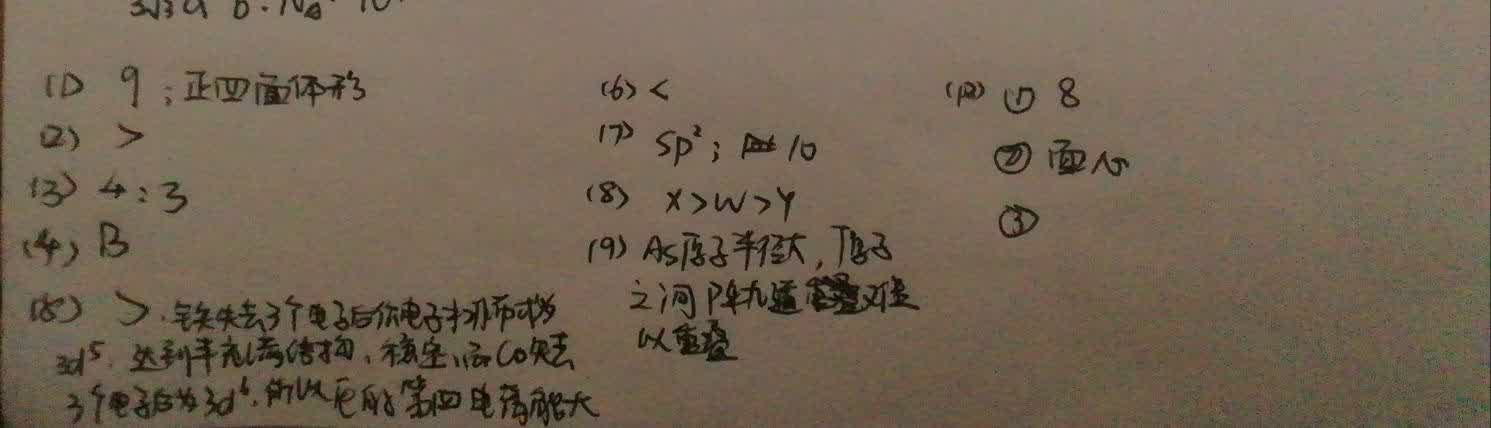 (1) 9 ; 正四面体形
(2) >
(3) 4 : 3
(4) B
(5) > . 铁失去3个电子后价电子排布式为
3d⁵. 达到半充满结构, 稳定, 而Co失去
3个电子后为3d⁶, 所以Fe的第四电离能大
(6) <
(7) sp² ; 10
(8) X>W>Y
(9) As原子半径大, 原子
之间 P轨道 难
以重叠
① 8
② 面心
③